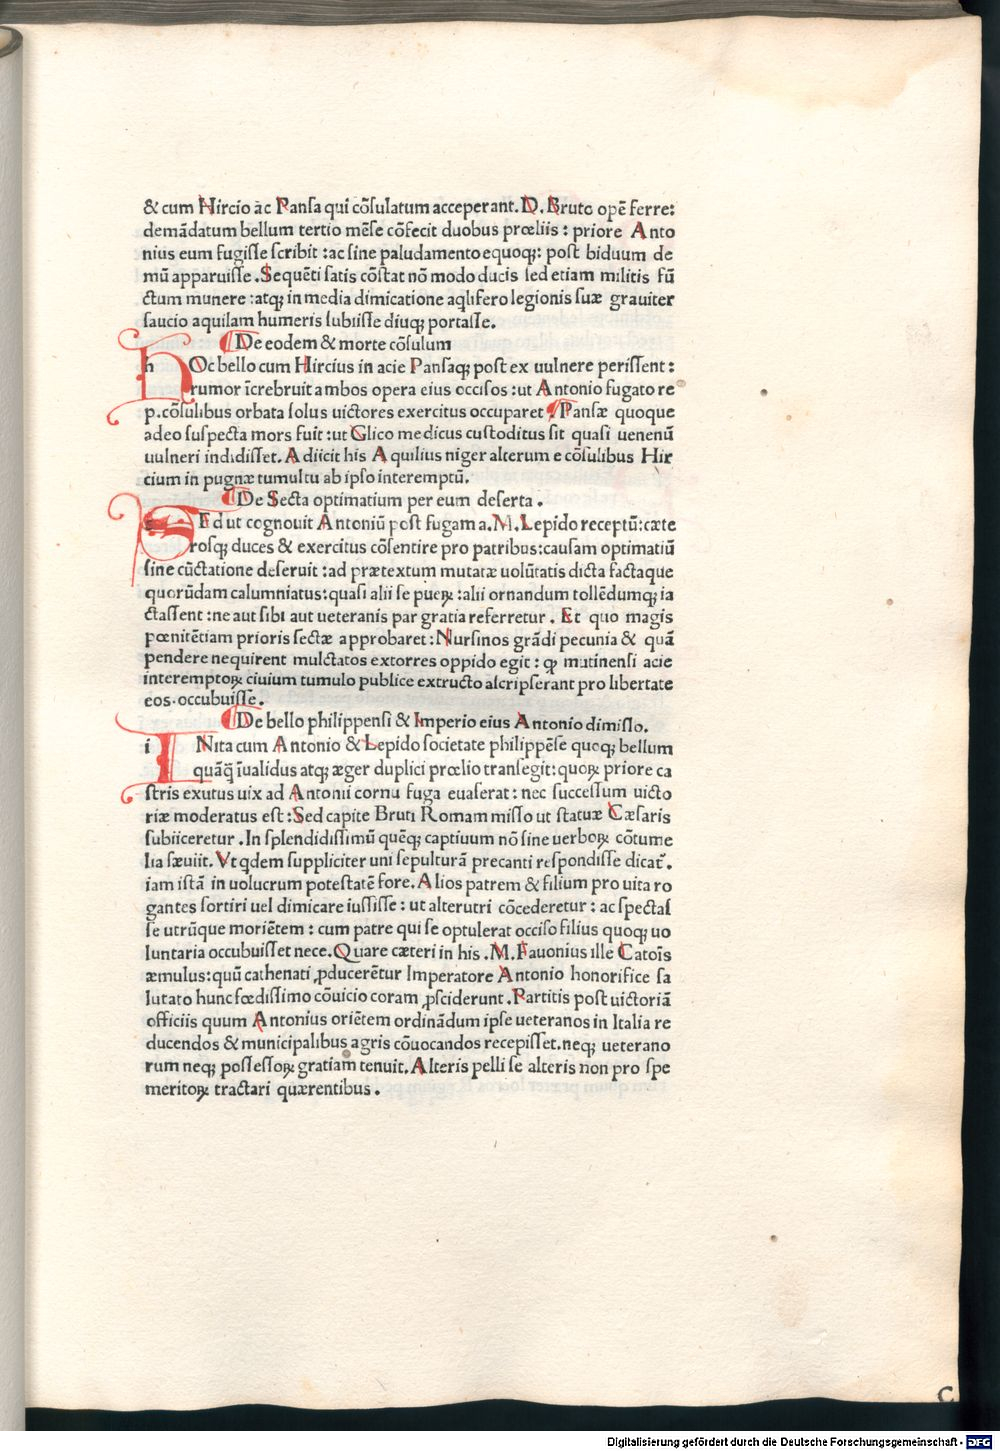 & cum Hircio ac Panſa qui cōſulatum acceperant. D. Bruto opē ferre:
demādatum bellum tertio mēſe cōfecit duobus prœliis : priore Anto
nius eum fugiſſe ſcribit : ac ſine paludamento equoqꝫ: poſt biduum de
mū apparuiſſe. Sequēti ſatis cōſtat nō modo ducis ſed etiam militis fū
ctum munere : atqꝫ in media dimicatione aqlifero legionis ſuæ grauiter
ſaucio aquilam humeris ſubiiſſe diuqꝫ portaſſe.
¶ De eodem & morte cōſulum
h OC bello cum Hircius in acie Panſaqꝫ poſt ex uulnere periſſent :
rumor īcrebruit ambos opera eius occiſos : ut Antonio fugato re
p. cōſulibus orbata ſolus uictores exercitus occuparet ¶ Panſæ quoque
adeo ſuſpecta mors fuit : ut Glico medicus cuſtoditus ſit quaſi uenenū
uulneri indidiſſet. Adiicit his Aquilius niger alterum e cōſulibus Hir
cium in pugnæ tumultu ab ipſo interemptū.
¶ De Secta optimatium per eum deſerta .
ſ Ed ut cognouit Antoniū poſt fugam a. M. Lepido receptū: cæte
roſqꝫ duces & exercitus cōſentire pro patribus: cauſam optimatiū
ſine cūctatione deſeruit : ad prætextum mutatæ uolūtatis dicta factaque
quorūdam calumniatus: quaſi alii ſe pueꝝ : alii ornandum tollēdumqꝫ ia
ctaſſent : ne aut ſibi aut ueteranis par gratia referretur . Et quo magis
pœnitētiam prioris ſectæ approbaret : Nurſinos grādi pecunia & quā
pendere nequirent mulctatos extorres oppido egit : qꝙ mutinenſi acie
interemptoꝝ ciuium tumulo publice extructo aſcripſerant pro libertate
eos. occubuiſſe .
¶ De bello philippenſi & Imperio eius Antonio dimiſſo.
i NIta cum Antonio & Lepido ſocietate philippēſe quoqꝫ bellum
quāq̄ īualidus atqꝫ æger duplici prœlio tranſegit: quoꝝ priore ca
ſtris exutus uix ad Antonii cornu fuga euaſerat : nec ſucceſſum uicto
riæ moderatus eſt : Sed capite Bruti Romam miſſo ut ſtatuæ Cæſaris
ſubiiceretur . In ſplendidiſſimū quēqꝫ captiuum nō ſine uerboꝝ cōtume
lia ſæuiit. Vt qdem ſuppliciter uni ſepulturā precanti reſpondiſſe dicat̉.
iam iſtā in uolucrum poteſtatē fore. Alios patrem & filium pro uita ro
gantes ſortiri uel dimicare iuſſiſſe : ut alterutri cōcederetur : ac ſpectaſ
ſe utrūque moriētem : cum patre qui ſe optulerat occiſo filius quoqꝫ uo
luntaria occubuiſſet nece. Quare cæteri in his . M. Fauonius ille Catoīs
æmulus: quū cathenati ꝓducerētur Imperatore Antonio honorifice ſa
lutato hunc fœdiſſimo cōuicio coram ꝓſciderunt . Partitis poſt uictoriā
officiis quum Antonius oriētem ordinādum ipſe ueteranos in Italia re
ducendos & municipalibus agris cōuocandos recepiſſet. neqꝫ ueterano
rum neqꝫ poſſeſſoꝝ gratiam tenuit. Alteris pelli ſe alteris non pro ſpe
meritoꝝ tractari quærentibus .
C
Digitalisierung gefördert durch die Deutsche Forschungsgemeinschaft - DFG